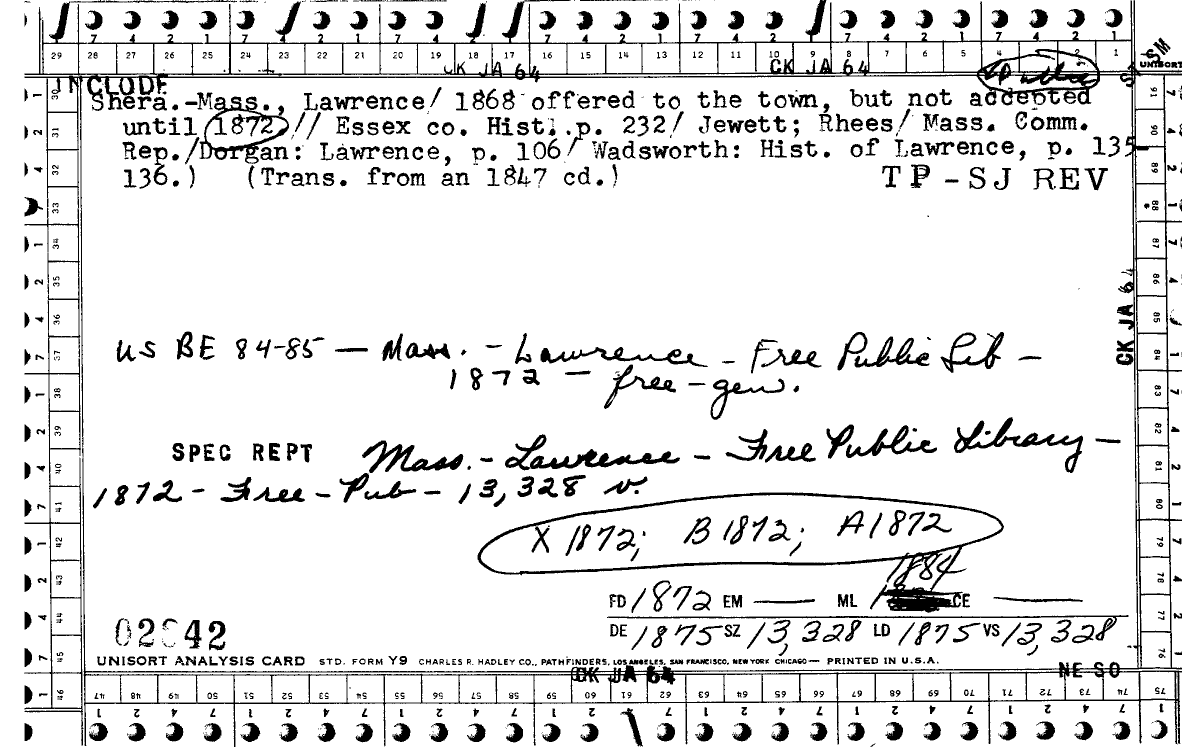 7 4 2 1 7 4 2 1 7 4 2 1 7 4 2 1 7 4 2 1 7 4 2 1 7 4 2 1
29 28 27 26 25 24 23 22 21 20 19 18 17 16 15 14 13 12 11 10 9 8 7 6 5 4 3 2 1 UNISORT
SM
CK JA 64 CK JA 64
INCLUDE Public
Shera.-Mass., Lawrence/ 1868 offered to the town, but not accepted
until 1872,// Essex co. Hist. p. 232/ Jewett; Rhees/ Mass. Comm.
Rep./Dorgan: Lawrence, p. 106/ Wadsworth: Hist. of Lawrence, p. 135-
136.) (Trans. from an 1847 cd.) TP-SJ REV
CK JA 64
US BE 84-85 — Mass. - Lawrence - Free Public Lib -
1872 - free-gen.
SPEC REPT Mass. - Lawrence - Free Public Library -
1872 - Free - Pub - 13,328 v.
X 1872; B 1872; A 1872
1884
FD 1872 EM — ML CE —
DE 1875 SZ 13,328 LD 1875 VS 13,328
UNISORT ANALYSIS CARD STD. FORM Y9 CHARLES R. HADLEY CO., PATHFINDERS, LOS ANGELES, SAN FRANCISCO, NEW YORK CHICAGO — PRINTED IN U.S.A.
CK JA 64 NE SO
47 48 49 50 51 52 53 54 55 56 57 58 59 60 61 62 63 64 65 66 67 68 69 70 71 72 73 74 75